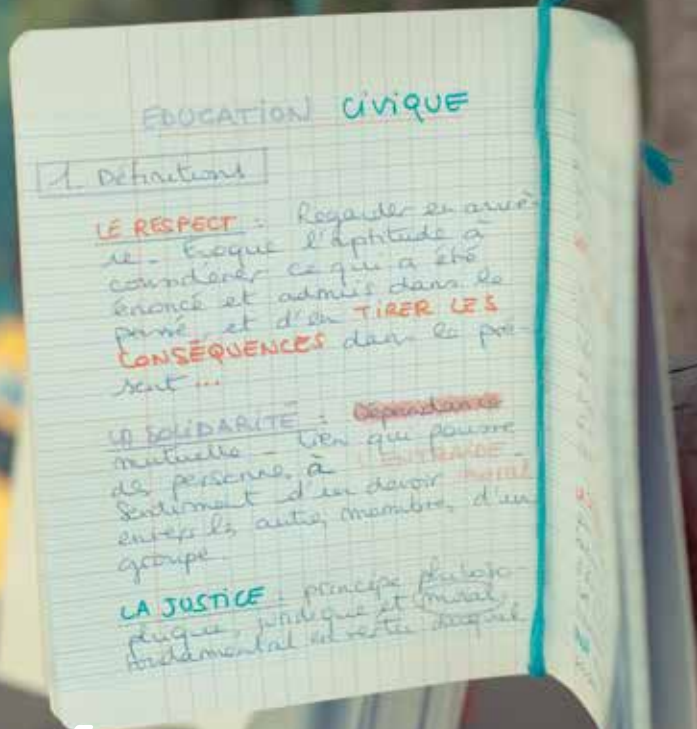 EDUCATION CIVIQUE
1. Définitions
LE RESPECT : Regarder en arriè-
re - Evoque l'aptitude à
considérer ce qui a été
énoncé et admis dans le
passé, et d'en TIRER LES
CONSÉQUENCES dans le pré-
sent ...
LA SOLIDARITÉ : Dépendance
mutuelle - lien qui pousse
des personnes à L'ENTRAIDE -
Sentiment d'un devoir moral
envers les autres membres d'un
groupe.
LA JUSTICE : principe philoso-
phique, juridique et moral
fondamental en vertu duquel